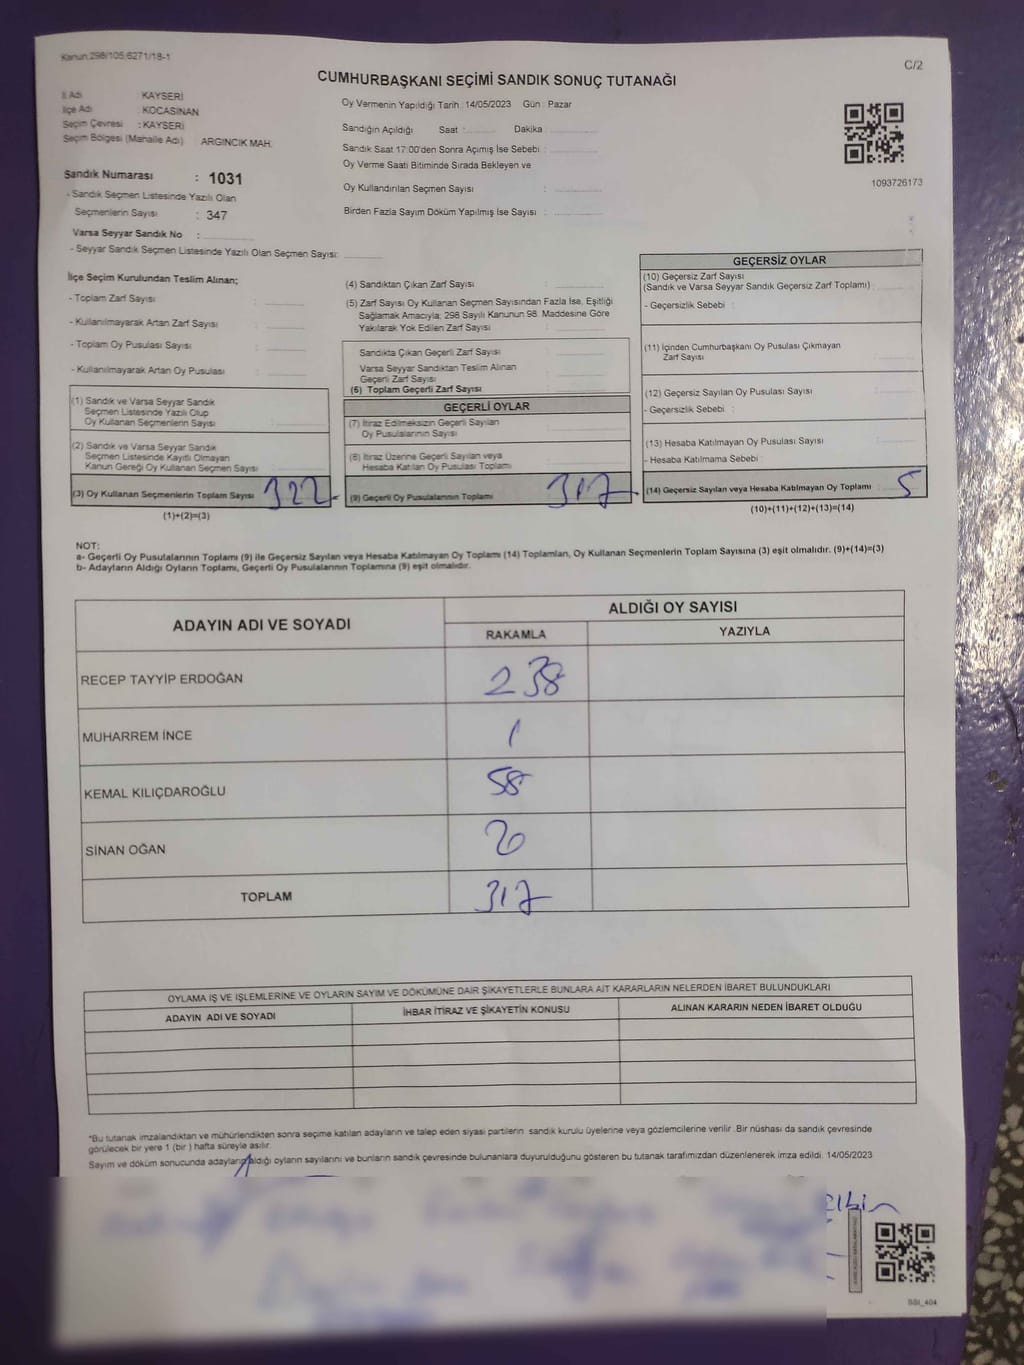 Kanun:298/105,6271/18-1
C/2
CUMHURBAŞKANI SEÇİMİ SANDIK SONUÇ TUTANAĞI
İl Adı : KAYSERİ
İlçe Adı : KOCASİNAN
Seçim Çevresi : KAYSERİ
Seçim Bölgesi (Mahalle Adı) ARGINCIK MAH.
Sandık Numarası : 1031
- Sandık Seçmen Listesinde Yazılı Olan
Seçmenlerin Sayısı : 347
Varsa Seyyar Sandık No :
- Seyyar Sandık Seçmen Listesinde Yazılı Olan Seçmen Sayısı:
Oy Vermenin Yapıldığı Tarih : 14/05/2023 Gün : Pazar
Sandığın Açıldığı Saat : Dakika :
Sandık Saat 17:00'den Sonra Açımış İse Sebebi :
Oy Verme Saati Bitiminde Sırada Bekleyen ve
Oy Kullandırılan Seçmen Sayısı :
Birden Fazla Sayım Döküm Yapılmış İse Sayısı :
1093726173
İlçe Seçim Kurulundan Teslim Alınan;
- Toplam Zarf Sayısı :
- Kullanılmayarak Artan Zarf Sayısı :
- Toplam Oy Pusulası Sayısı :
- Kullanılmayarak Artan Oy Pusulası :
(1) Sandık ve Varsa Seyyar Sandık
Seçmen Listesinde Yazılı Olup
Oy Kullanan Seçmenlerin Sayısı :
(2) Sandık ve Varsa Seyyar Sandık
Seçmen Listesinde Kayıtlı Olmayan
Kanun Gereği Oy Kullanan Seçmen Sayısı :
(3) Oy Kullanan Seçmenlerin Toplam Sayısı 322
(1)+(2)=(3)
(4) Sandıktan Çıkan Zarf Sayısı :
(5) Zarf Sayısı Oy Kullanan Seçmen Sayısından Fazla İse, Eşitliği
Sağlamak Amacıyla; 298 Sayılı Kanunun 98. Maddesine Göre
Yakılarak Yok Edilen Zarf Sayısı :
Sandıkta Çıkan Geçerli Zarf Sayısı :
Varsa Seyyar Sandıktan Teslim Alınan
Geçerli Zarf Sayısı :
(6) Toplam Geçerli Zarf Sayısı :
GEÇERLİ OYLAR
(7) İtiraz Edilmeksizin Geçerli Sayılan
Oy Pusulalarının Sayısı :
(8) İtiraz Üzerine Geçerli Sayılan veya
Hesaba Katılan Oy Pusulası Toplamı :
(9) Geçerli Oy Pusulalarının Toplamı 317
GEÇERSİZ OYLAR
(10) Geçersiz Zarf Sayısı
(Sandık ve Varsa Seyyar Sandık Geçersiz Zarf Toplamı) :
- Geçersizlik Sebebi :
(11) İçinden Cumhurbaşkanı Oy Pusulası Çıkmayan
Zarf Sayısı :
(12) Geçersiz Sayılan Oy Pusulası Sayısı :
- Geçersizlik Sebebi :
(13) Hesaba Katılmayan Oy Pusulası Sayısı :
- Hesaba Katılmama Sebebi :
(14) Geçersiz Sayılan veya Hesaba Katılmayan Oy Toplamı : 5
(10)+(11)+(12)+(13)=(14)
NOT:
a- Geçerli Oy Pusulalarının Toplamı (9) ile Geçersiz Sayılan veya Hesaba Katılmayan Oy Toplamı (14) Toplamları, Oy Kullanan Seçmenlerin Toplam Sayısına (3) eşit olmalıdır. (9)+(14)=(3)
b- Adayların Aldığı Oyların Toplamı, Geçerli Oy Pusulalarının Toplamına (9) eşit olmalıdır.
ADAYIN ADI VE SOYADI ALDIĞI OY SAYISI
RAKAMLA YAZIYLA
RECEP TAYYİP ERDOĞAN 238
MUHARREM İNCE 1
KEMAL KILIÇDAROĞLU 58
SİNAN OĞAN 20
TOPLAM 317
OYLAMA İŞ VE İŞLEMLERİNE VE OYLARIN SAYIM VE DÖKÜMÜNE DAİR ŞİKAYETLERLE BUNLARA AİT KARARLARIN NELERDEN İBARET BULUNDUKLARI
ADAYIN ADI VE SOYADI İHBAR İTİRAZ VE ŞİKAYETİN KONUSU ALINAN KARARIN NEDEN İBARET OLDUĞU
*Bu tutanak imzalandıktan ve mühürlendikten sonra seçime katılan adayların ve talep eden siyasi partilerin sandık kurulu üyelerine veya gözlemcilerine verilir. Bir nüshası da sandık çevresinde
görülecek bir yere 1 (bir ) hafta süreyle asılır.
Sayım ve döküm sonucunda adayların aldığı oyların sayılarını ve bunların sandık çevresinde bulunanlara duyurulduğunu gösteren bu tutanak tarafımızdan düzenlenerek imza edildi. 14/05/2023
SSI_404